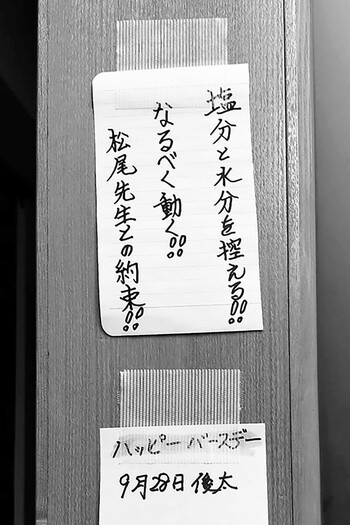 塩分と水分を控える!!
なるべく動く!!
松尾先生との約束!!
ハッピーバースデー
9月28日 俊太